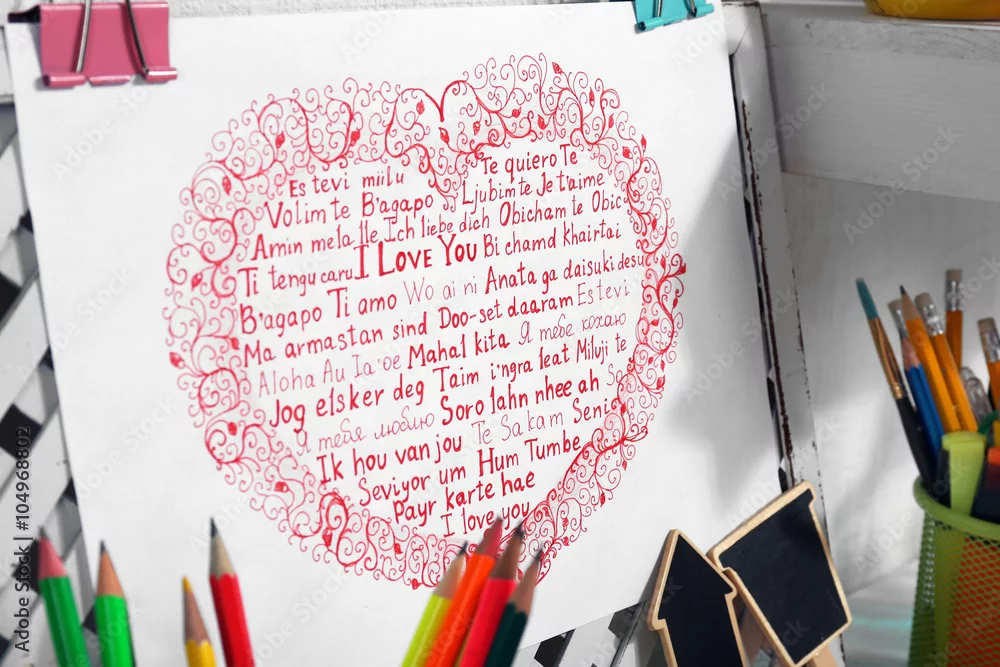 Te quiero Te
Es tevi miilu Ljubim te Je t'aime
Volim te B'agapo Ich liebe dich Obicham te Obic
Amin mela lle I Love You Bi chamd khairtai
Ti tengu caru Wo ai ni Anata ga daisuki desu
B'agapo Ti amo Doo-set daaram Es tevi
Ma armastan sind Mahal kita Я тебе кохаю
Aloha Au Ia'oe Taim i'ngra leat Miluji te
Jog elsker deg Soro lahn nhee ah
тебя люблю Te Sa kam Seni
Ik hou van jou Hum Tumbe
Seviyor um
Payr karte hae
I love you
Adobe Stock
104968802